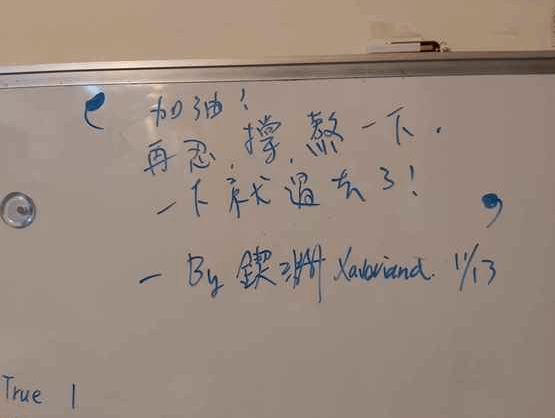 加油！
再忍、撐、熬一下.
一下就過去了！
- By 鍥 11/13
True 1